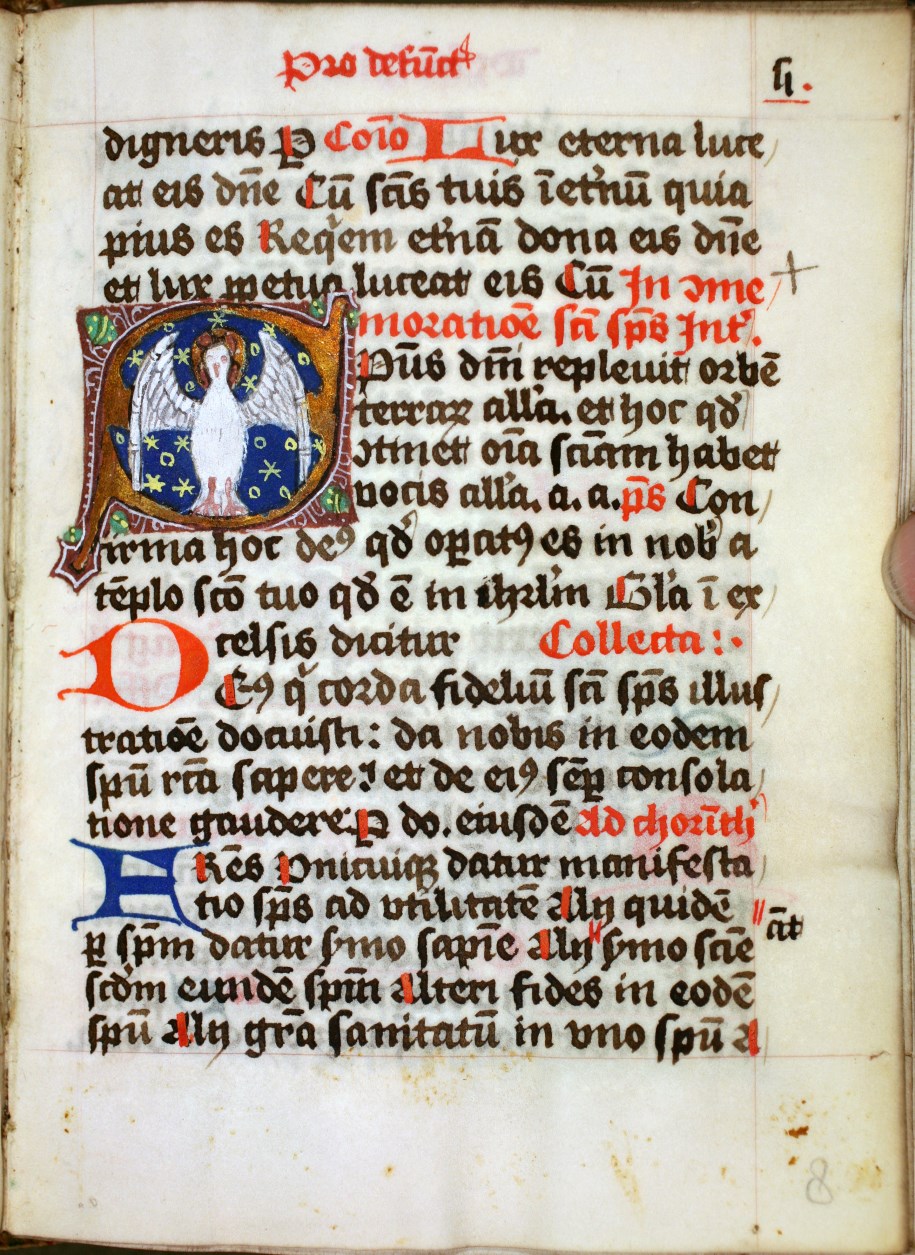 Pro defūct
4.
digneris P Cōīo Lux eterna luce
at eis dn̄e Cū sc̄is tuis īet'nū quia
pius es Requiem et'nā dona eis dn̄e
et lux ꝑpetua luceat eis Cū In ↄme
moratiōe sc̄i sp̄s Int'.
Pūs dn̄i repleuit orbē
terraꝝ all'a. et hoc qd'
ↄtinet oīa sciām habet
vocis all'a. a. a. p̄s Con
firma hoc deꝰ qd' oꝑatꝰ es in nob' a
tēplo sc̄o tuo qd' ē in ihrl'm Gl'a ī ex
celsis dicitur Collecta :·
Deꝰ qͥ corda fideliū sc̄i sp̄s illus
tratiōe docuisti : da nobis in eodem
spū rc̄a sapere : et de eiꝰ sēꝑ consola
tione gaudere. P do. eiusdē Ad chorīth'
FRēs Vnicuiqꝫ datur manifesta
tio sp̄s ad vtilitatē Alij quidē
ꝑ sp̄m datur s'mo sapiē Alij s'mo sciē
āt
scd'm eundē sp̄m Alteri fides in eodē
spū Alij gr̄a sanitatū in vno spū A
8